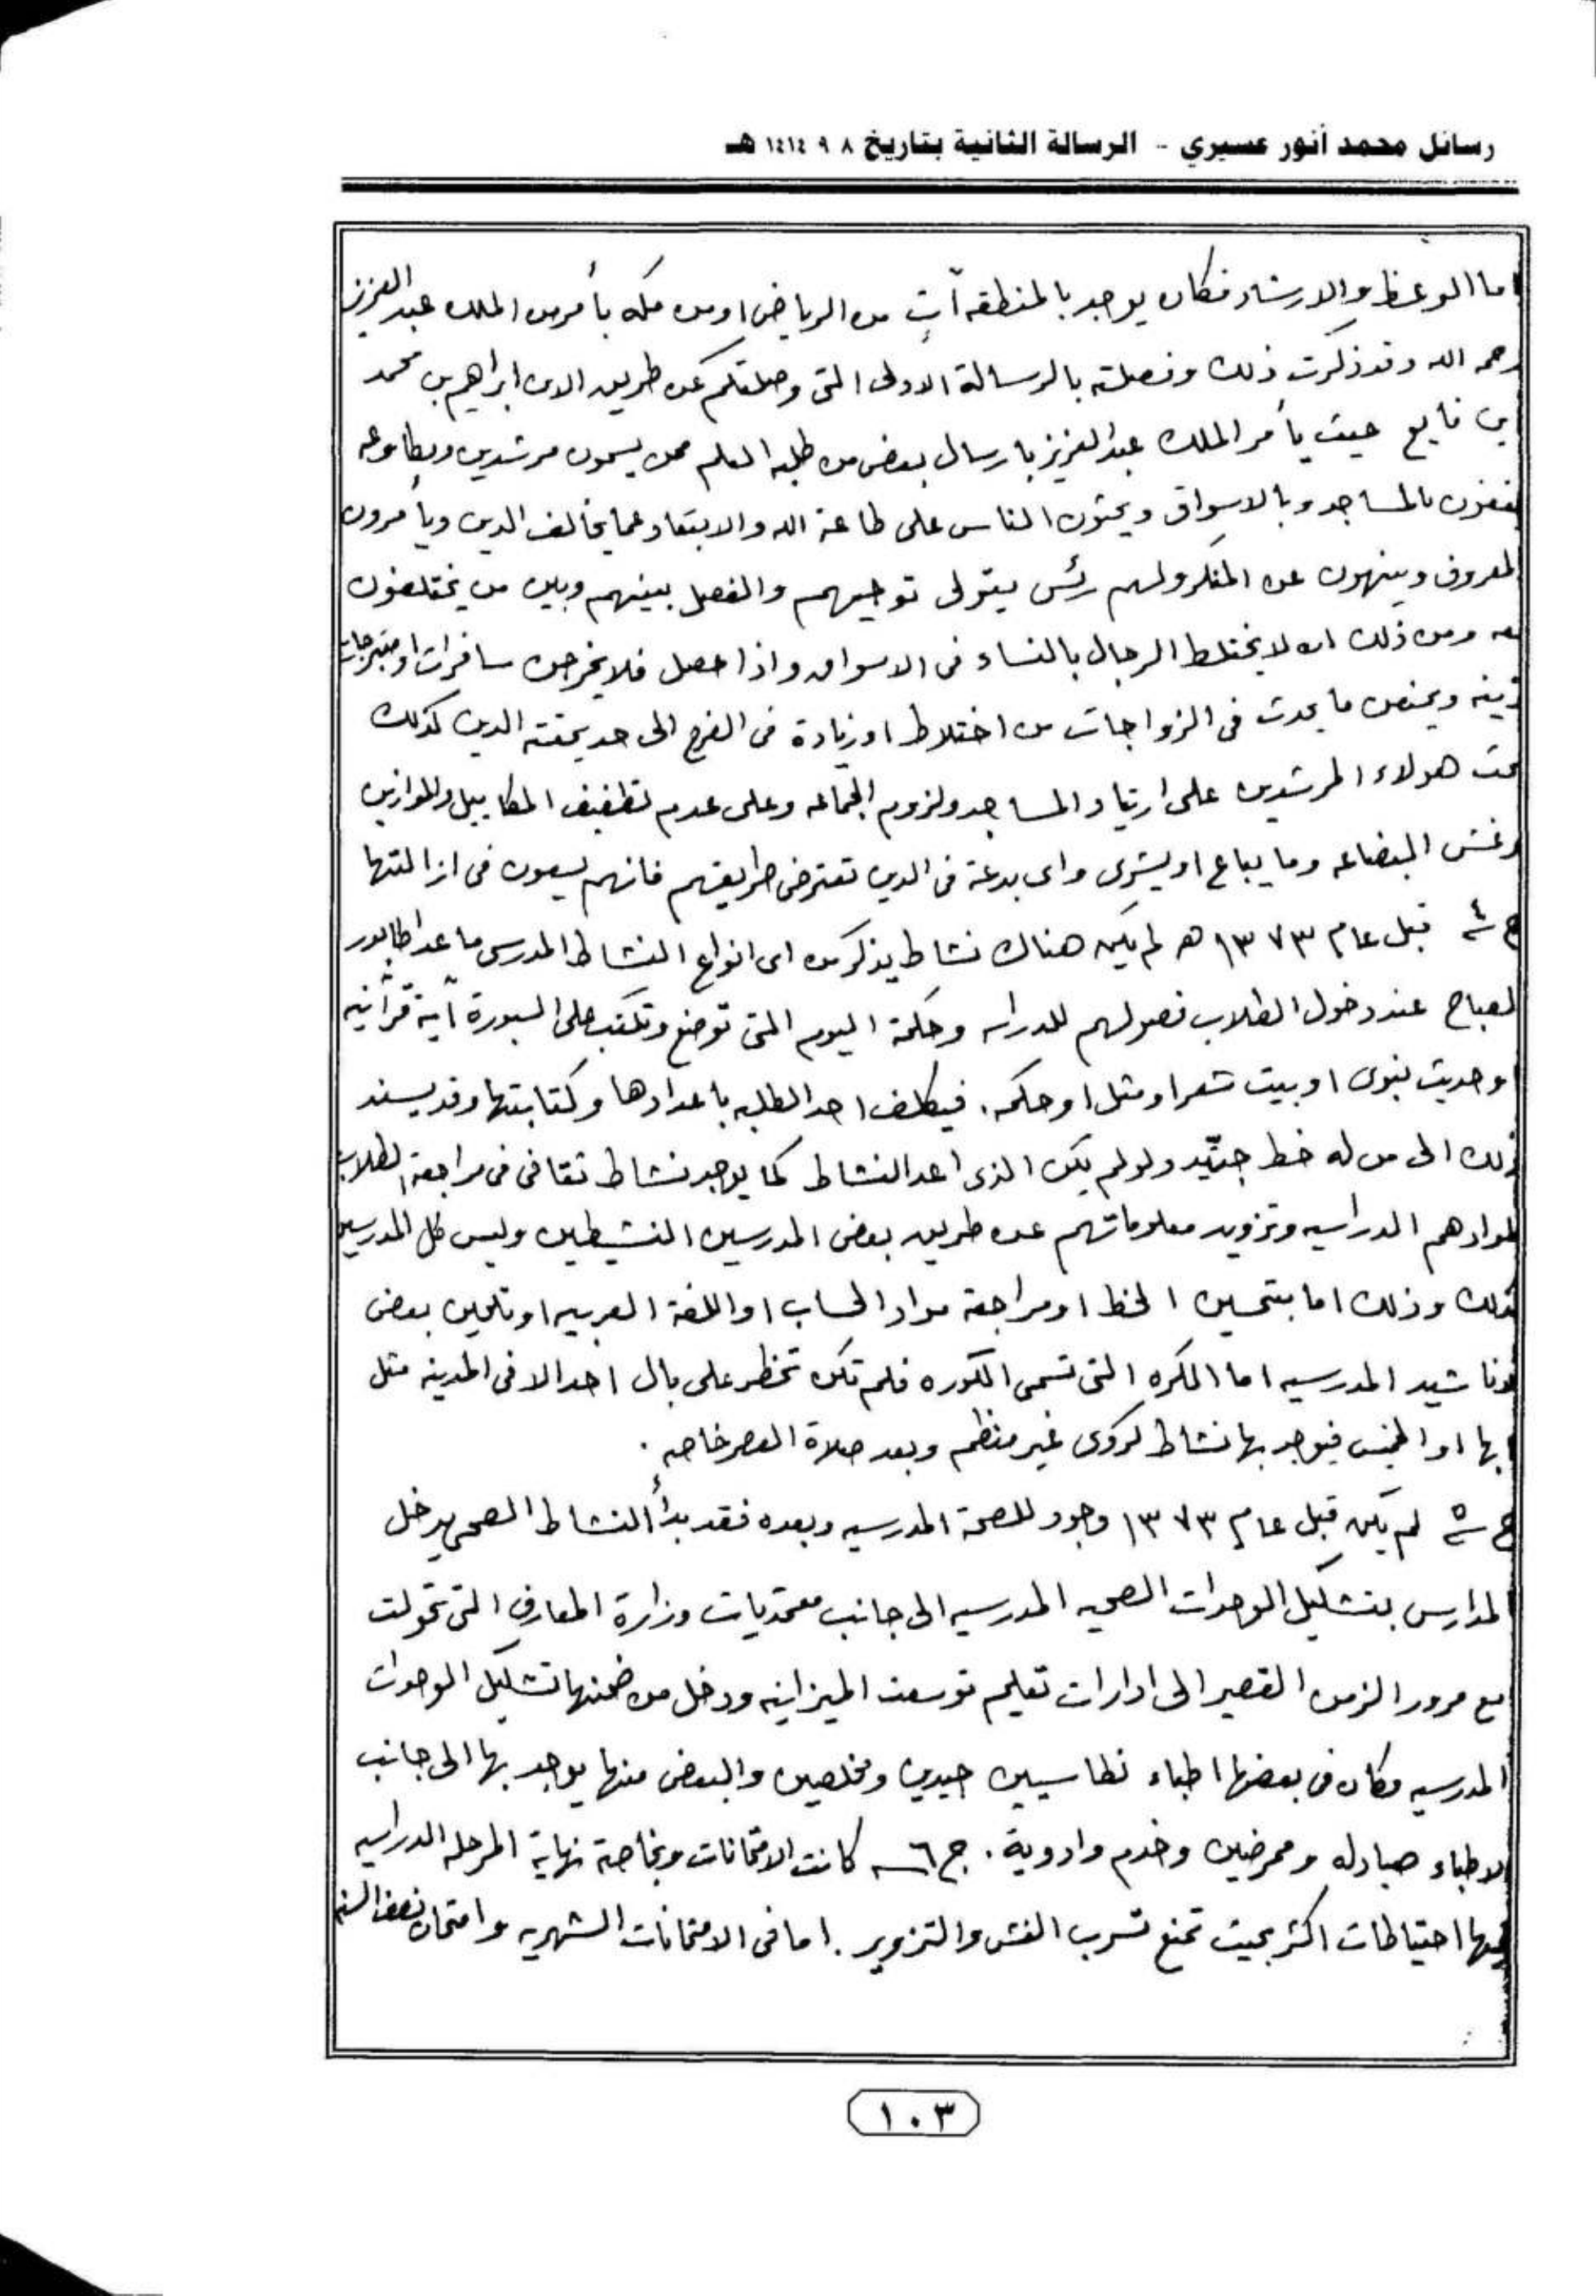 رسائل محمد أنور عسيري - الرسالة الثانية بتاريخ ٨ ٩ ١٤١٤ هـ
اما الوعظ والارشاد فكان يوجد بالمنطقه آتٍ من الرياض او من مكه بأمر من الملك عبد العزيز
رحمه الله وقد ذكرت ذلك وفصلته بالرسالة الاولى التى وصلتكم عن طريق الابن ابراهيم بن محمد
بن فايع حيث يأمر الملك عبد العزيز بارسال بعض من طلبه العلم ممن يسمون مرشدين ومطاوعه
يقفون بالمساجد وبالاسواق ويحثون الناس على طاعة الله والابتعاد عما يخالف الدين ويأمرون
لمعروف وينهون عن المنكر ولهم رئس يتولى توجيههم والفصل بينهم وبين من يختلفون
معه ومن ذلك ان لا يختلط الرجال بالنساء فى الاسواق واذا حصل فلا يخرجن سافرات او متبرجات
زينه ويمنعن ما يحدث فى الزواجات من اختلاط او زيادة فى الفرح الى حد يمقته الدين كذلك
يحث هولاء المرشدين على ارتياد المساجد ولزوم الجماعه وعلى عدم تطفيف المكاييل والموازين
وغش البضاعه وما يباع او يشترى واى بدعة فى الدين تعترض طريقهم فانهم يسعون فى ازالتها
ج ٤ قبل عام ١٣٧٣ هـ لم يكن هناك نشاط يذكر من اى انواع النشاط المدرسى ما عدا طابور
لصباح عند دخول الطلاب فصولهم للدراسه وحكمة اليوم التى توضع وتكتب على السبورة آية قرآنيه
او حديث نبوى او بيت شعر او مثل او حكمه . فيكلف احد الطلبه باعدادها وكتابتها وقد يسند
ذلك الى من له خط جيّد ولو لم يكن الذى اعد النشاط كما يوجد نشاط ثقافى فى مراجعة الطلاب
لموادهم الدراسيه وتزويد معلوماتهم عن طريق بعض المدرسين النشيطين وليس كل المدرسين
كذلك وذلك اما بتحسين الخط او مراجعة مواد الحساب او اللغة العربيه او تلحين بعض
لاناشيد المدرسيه اما الكره التى تسمى الكوره فلم تكن تخطر على بال احد الا فى المدينه مثل
ابها او الخميس فيوجد بها نشاط كروى غير منظم وبعد صلاة العصر خاصه .
ج ٥ لم يكن قبل عام ١٣٧٣ وجود للصحة المدرسيه وبعده فقد بدأ النشاط الصحى يدخل
المدارس بتشكيل الوحدات الصحيه المدرسيه الى جانب معتمديات وزارة المعارف التى تحولت
مع مرور الزمن القصير الى ادارات تعليم توسعت الميزانيه ودخل من ضمنها تشكيل الوحدات
المدرسيه وكان فى بعضها اطباء نطاسيين جيدين ومخلصين والبعض منها يوجد بها الى جانب
الاطباء صيادله وممرضين وخدم وادوية . ج ٦ كانت الامتحانات وبخاصة نهاية المرحله الدراسيه
فيها احتياطات اكثر بحيث تمنع تسرب الغش والتزوير . اما فى الامتحانات الشهريه وامتحان نصف السنه
١٠٣